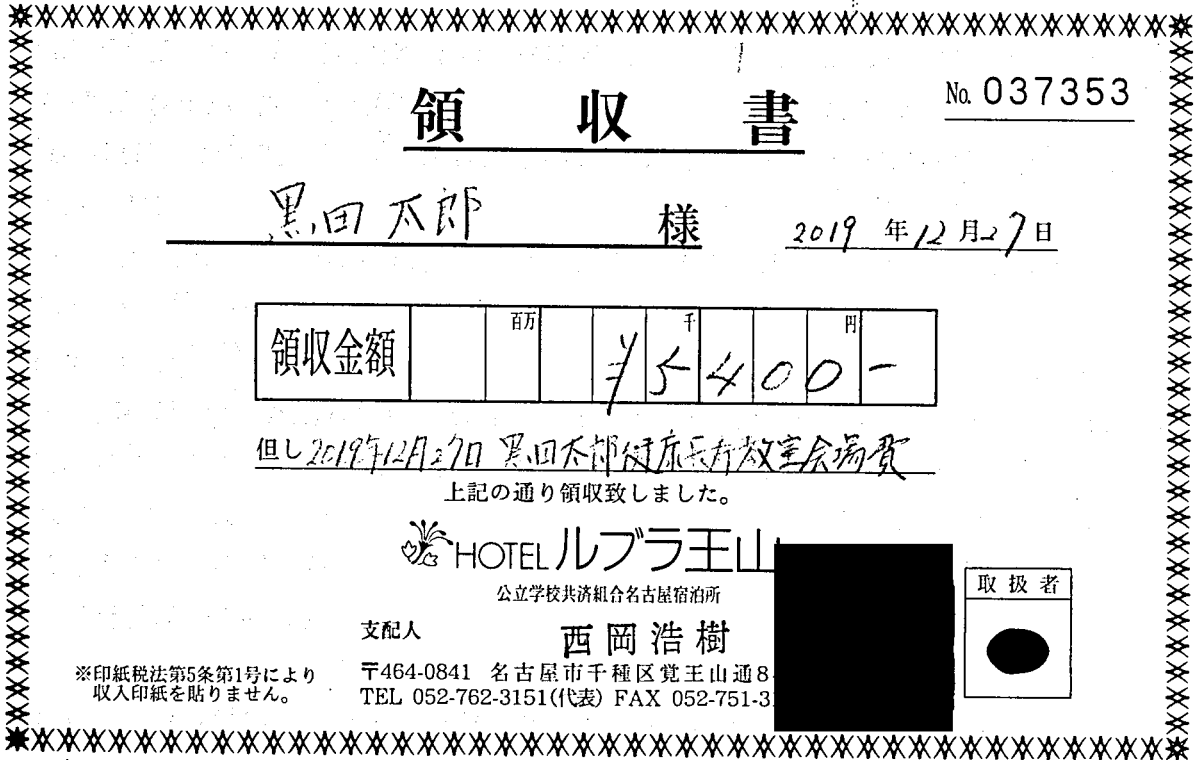 領収書
No. 037353
黒田太郎 様
2019年12月27日
領収金額 百万 千 円
¥5400-
但し 2019年12月27日 黒田太郎健康長寿教室会場費
上記の通り領収致しました。
HOTEL ルブラ王山
公立学校共済組合名古屋宿泊所
支配人 西岡浩樹
〒464-0841 名古屋市千種区覚王山通8-
TEL 052-762-3151(代表) FAX 052-751-3
※印紙税法第5条第1号により
収入印紙を貼りません。
取扱者